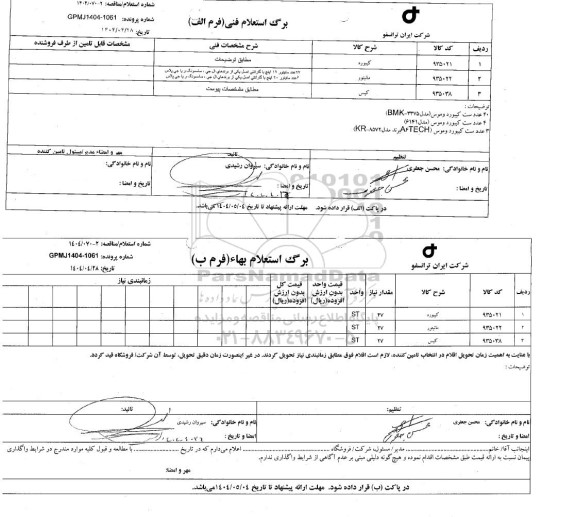 شماره استعلام/مناقصه: ۱۴۰۴/۰۷۰۰۲
برگ استعلام فنی(فرم الف)
شماره پرونده: GPMJ1404-1061
تاریخ: ۱۴۰۴/۰۴/۲۸
شرکت ایران ترانسفو
ردیف کد کالا شرح کالا شرح مشخصات فنی مشخصات قابل تامین از طرف فروشنده
۱ ۹۳۵۰۲۱ کیبورد مطابق توضیحات
۲ ۹۳۵۰۲۲ مانیتور
۳ ۹۳۵۰۳۸ کیس مطابق مشخصات پیوست
توضیحات:
۲۰ عدد ست کیبورد وموس(مدل BMK-۳۳۷۵)
۴ عدد ست کیبورد وموس (مدل۶۱۴۱)
۳ عدد ست کیبورد وموس (A۴TECHبرند مدل KR-۸۵۷۲)
تنظیم: تائید: مهر و امضاء مدیر/مسئول تامین کننده
نام و نام خانوادگی: محسن جعفری نام و نام خانوادگی: سیروان رشیدی نام و نام خانوادگی:
تاریخ و امضا: تاریخ و امضا: تاریخ و امضا:
در پاکت (الف) قرار داده شود. مهلت ارائه پیشنهاد تا تاریخ ۱۴۰۴/۰۵/۰۴می‌باشد.
شماره استعلام/مناقصه: ۱۴۰۴/۰۷۰۰۲
برگ استعلام بهاء(فرم ب)
شماره پرونده: GPMJ1404-1061
تاریخ: ۱۴۰۴/۰۴/۲۸
شرکت ایران ترانسفو
ParsNamadData
پایگاه اطلاع رسانی مناقصه و مزایده
۰۲۱-۸۸۳۴۹۶۷۰-۵
ردیف کد کالا شرح کالا مقدار نیاز واحد قیمت واحد بدون ارزش افزوده(ریال) قیمت کل بدون ارزش افزوده(ریال) زمانبندی نیاز
۱ ۹۳۵۰۲۱ کیبورد ۲۷ ST
۲ ۹۳۵۰۲۲ مانیتور ۲۷ ST
۳ ۹۳۵۰۳۸ کیس ۲۷ ST
با عنایت به اهمیت زمان تحویل اقلام در انتخاب تامین کننده، لازم است اقلام فوق مطابق زمانبندی نیاز تحویل گردند. در غیر اینصورت زمان دقیق تحویل، توسط آن شرکت/ فروشگاه قید گردد.
توضیحات:
تنظیم: تائید:
نام و نام خانوادگی: محسن جعفری نام و نام خانوادگی: سیروان رشیدی
امضا و تاریخ: امضا و تاریخ:
اینجانب آقا/ خانم مدیر / مسئول، شرکت / فروشگاه اعلام می‌دارم که در تاریخ با مطالعه و قبول کلیه موارد مندرج در شرایط واگذاری
پیمان نسبت به ارائه قیمت طبق مشخصات اقدام نموده و هیچگونه دلیلی مبنی بر عدم آگاهی از شرایط واگذاری ندارم.
مهر و امضا:
در پاکت (ب) قرار داده شود. مهلت ارائه پیشنهاد تا تاریخ ۱۴۰۴/۰۵/۰۴می‌باشد.